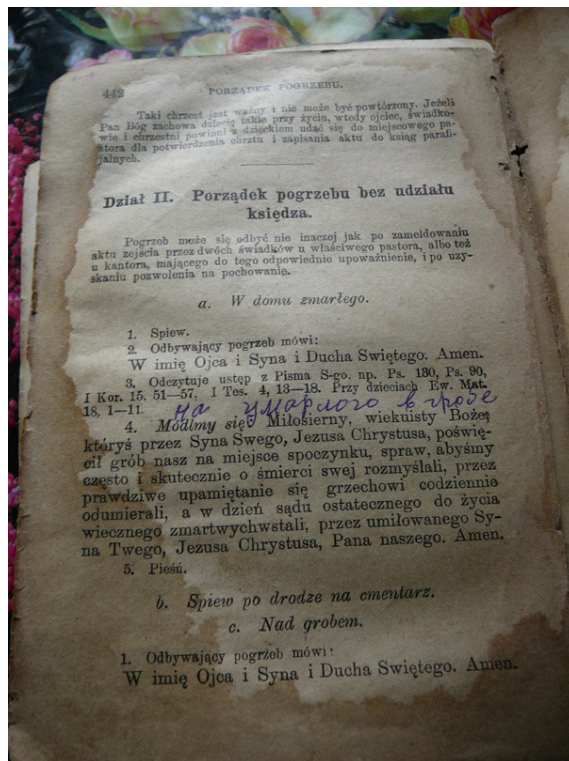 442 PORZĄDEK POGRZEBU.
Taki chrzest jest ważny i nie może być powtórzony. Jeżeli
Pan Bóg zachowa dziecię takie przy życiu, wtedy ojciec, świadko-
wie i chrzestni powinni z dzieckiem udać się do miejscowego pa-
stora dla potwierdzenia chrztu i zapisania aktu do ksiąg parafi-
jalnych.
Dział II. Porządek pogrzebu bez udziału
księdza.
Pogrzeb może się odbyć nie inaczej jak po zameldowaniu
aktu zejścia przez dwóch świadków u właściwego pastora, albo też
u kantora, mającego do tego odpowiednie upoważnienie, i po uzy-
skaniu pozwolenia na pochowanie.
a. W domu zmarłego.
1. Spiew.
2. Odbywający pogrzeb mówi:
W imię Ojca i Syna i Ducha Swiętego. Amen.
3. Odczytuje ustęp z Pisma S-go, np. Ps. 130, Ps. 90,
I Kor. 15, 51—57, I Tes. 4, 13—18. Przy dzieciach Ew. Mat.
18, 1—11. на умарлого в гробе
4. Módlmy się! Miłosierny, wiekuisty Boże,
któryś przez Syna Swego, Jezusa Chrystusa, poświę-
cił grób nasz na miejsce spoczynku, spraw, abyśmy
często i skutecznie o śmierci swej rozmyślali, przez
prawdziwe upamiętanie się grzechowi codziennie
odumierali, a w dzień sądu ostatecznego do życia
wiecznego zmartwychwstali, przez umiłowanego Sy-
na Twego, Jezusa Chrystusa, Pana naszego. Amen.
5. Pieśń.
b. Spiew po drodze na cmentarz.
c. Nad grobem.
1. Odbywający pogrzeb mówi:
W imię Ojca i Syna i Ducha Swiętego. Amen.